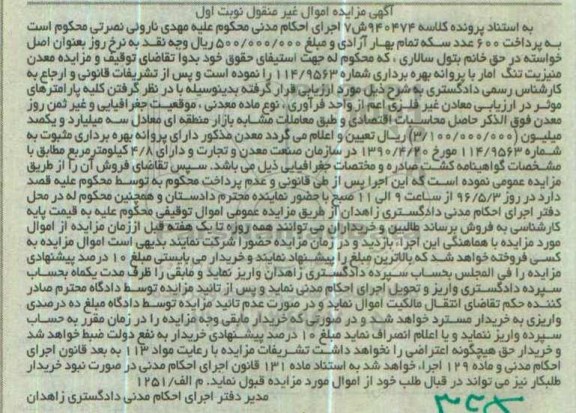 آگهی مزایده اموال غیر منقول نوبت اول
به استناد پرونده کلاسه ۹۴۰۴۷۴ش۷ اجرای احکام مدنی محکوم علیه مهدی نارونی نصرتی محکوم است
به پرداخت ۶۰۰ عدد سکه تمام بهار آزادی و مبلغ ۵۰۰/۰۰۰/۰۰۰ ریال وجه نقد به نرخ روز بعنوان اصل
خواسته در حق خانم بتول سالاری ، که محکوم له جهت استیفای حقوق خود بدوا تقاضای توقیف و مزایده معدن
منیزیت تنگ امار با پروانه بهره برداری شماره ۱۱۴/۹۵۶۳ را نموده است و پس از تشریفات قانونی و ارجاع به
کارشناس رسمی دادگستری به شرح ذیل مورد ارزیابی قرار گرفته بدینوسیله با در نظر گرفتن کلیه پارامترهای
موثر در ارزیابی معادن غیر فلزی اعم از واحد فرآوری ، نوع ماده معدنی ، موقعیت جغرافیایی و غیر ثمن روز
معدن فوق الذکر حاصل محاسبات اقتصادی و طبق معاملات مشابه بازار منطقه ای معادل سه میلیارد و یکصد
میلیون (۳/۱۰۰/۰۰۰/۰۰۰) ریال تعیین و اعلام می گردد معدن مذکور دارای پروانه بهره برداری مثبوت به
شماره ۱۱۴/۹۵۶۳ مورخ ۱۳۹۰/۴/۲۰ در سازمان صنعت معدن و تجارت و دارای ۴/۸ کیلومتر مربع مطابق با
مشخصات گواهینامه کشت صادره و مختصات جغرافیایی ذیل می باشد. سپس تقاضای فروش آن را از طریق
مزایده عمومی نموده است که این اجرا پس از طی قانونی و عدم پرداخت محکوم به توسط محکوم علیه قصد
دارد در روز ۹۶/۵/۳ از ساعت ۹ الی ۱۱ صبح با حضور نماینده محترم دادستان و همچنین محکوم له در محل
دفتر اجرای احکام مدنی دادگستری زاهدان از طریق مزایده عمومی اموال توقیفی محکوم علیه به قیمت پایه
کارشناسی به فروش برساند طالبین و خریداران می توانند همه روزه تا یک هفته قبل از زمان مزایده از اموال
مورد مزایده با هماهنگی این اجرا، بازدید و در زمان مزایده حضورا شرکت نمایند بدیهی است اموال مزایده به
کسی فروخته خواهد شد که بالاترین مبلغ را پیشنهاد نمایند و خریدار می بایستی مبلغ ۱۰ درصد پیشنهادی
مزایده را فی المجلس بحساب سپرده دادگستری زاهدان واریز نماید و مابقی را ظرف مدت یکماه بحساب
سپرده دادگستری واریز و تحویل اجرای احکام مدنی نماید و پس از تائید مزایده توسط دادگاه محترم صادر
کننده حکم تقاضای انتقال مالکیت اموال نماید و در صورت عدم تائید مزایده توسط دادگاه مبلغ ده درصدی
واریزی به خریدار مسترد خواهد شد و در صورتی که خریدار مابقی وجه مزایده را در زمان مقرر به حساب
سپرده واریز ننماید و یا اعلام انصراف نماید مبلغ ۱۰ درصد پیشنهادی خریدار به نفع دولت ضبط خواهد شد
و خریدار حق هیچگونه اعتراضی را نخواهد داشت تشریفات مزایده با رعایت مواد ۱۱۳ به بعد قانون اجرای
احکام مدنی و ماده ۱۲۹ اجرا، خواهد شد به استناد ماده ۱۳۱ قانون اجرای احکام مدنی در صورت نبود خریدار
طلبکار نیز می تواند در قبال طلب خود از اموال مورد مزایده قبول نماید. م الف/۱۲۵۱
مدیر دفتر اجرای احکام مدنی دادگستری زاهدان